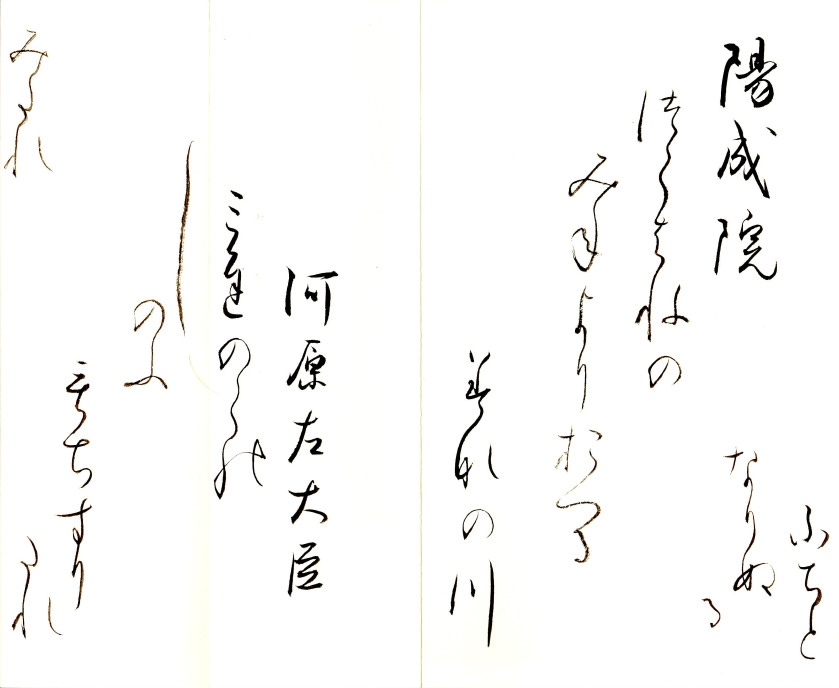 陽成院
つくはねの
みねよりおつる
みなの川
ふちと
なりぬ
る
河原左大臣
みちのくの
し
のふ
もちすり
たれ
みたれ